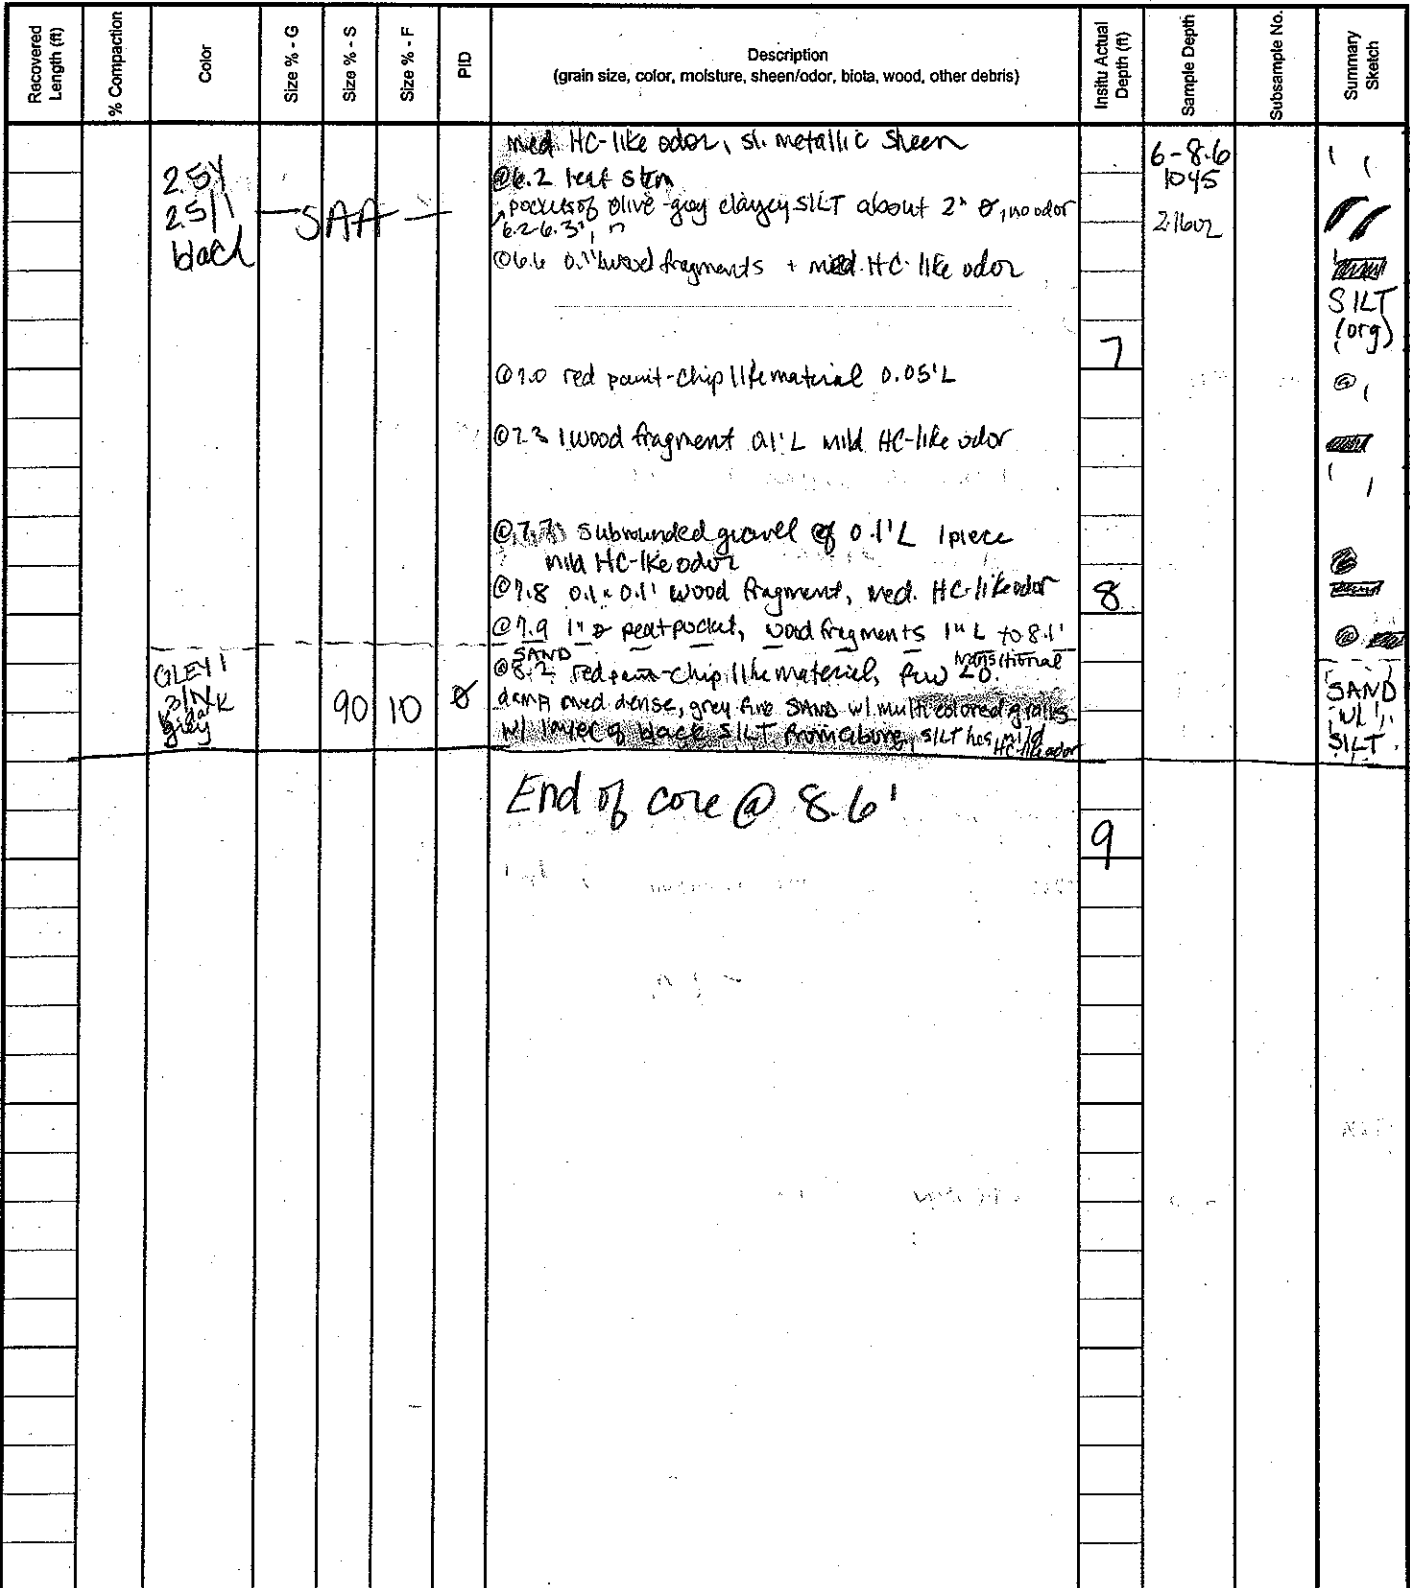 Recovered Length (ft)
% Compaction
Color
Size % - G
Size % - S
Size % - F
PID
Description
(grain size, color, moisture, sheen/odor, biota, wood, other debris)
Insitu Actual Depth (ft)
Sample Depth
Subsample No.
Summary Sketch
med. HC-like odor, sl. metallic sheen
@6.2 leaf stem
pockets of olive-gray clayey SILT about 2" Ø, no odor
6.2-6.3'
@6.6 0.1' wood fragments + med. HC-like odor
2.5Y
2.5/1
black
SAA
6-8.6
1045
SILT
(org)
7
@7.0 red paint-chip like material 0.05'L
@7.3 1 wood fragment 0.1'L mild HC-like odor
@7.7 subrounded gravel of 0.1'L 1piece
mild HC-like odor
@7.8 0.1 x 0.1' wood fragment, med. HC-like odor
8
@7.9 1" Ø peat pocket, wood fragments 1" L to 8.1'
SAND
transitional
@8.2 red paint-chip like material, few <0.
GLEY 1
3/N
dark
grey
90
10
Ø
damp med dense, grey fine SAND w/ multicolored grains
w/ of black SILT from above, silt has mild
HC-like odor
SAND
w/
SILT
End of core @ 8.6'
9